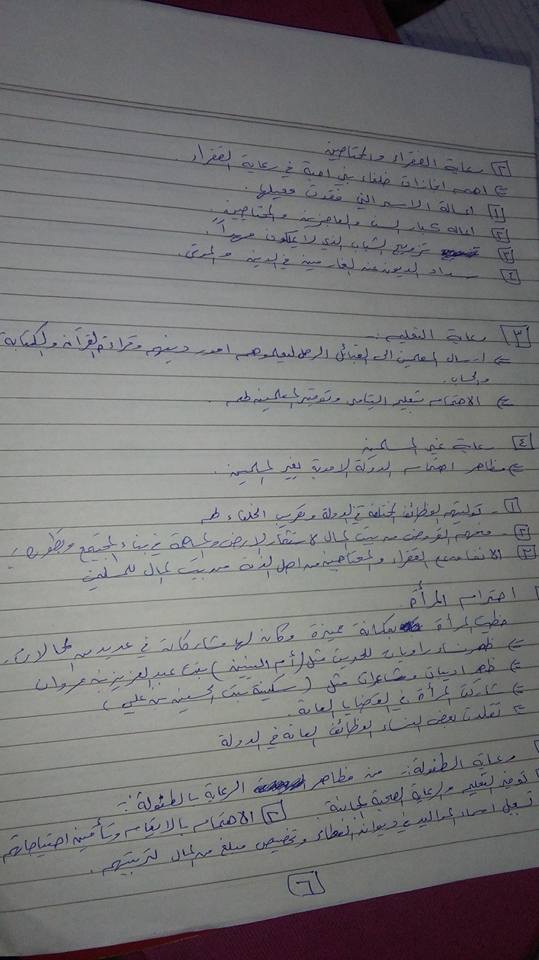 [٢] رعاية الفقراء والمحتاجين
⇐ اهم انجازات خلفاء بني امية في رعاية الفقراء.
[١] اعالة الاسر التي فقدت معيلها.
[٢] اعالة كبار السن والعاجزين والمحتاجين.
[٣] تزويج الشباب الذي لا يملكون مهراً.
[٤] سداد الديون عن الغارمين في الدين والموتى.
[٣] رعاية التعليم :-
⇐ ارسال المعلمين الى القبائل الرحل ليعلموهم امور دينهم وقراءة القرآن والكتابة
والحساب.
⇐ الاهتمام بتعليم اليتامى وتوفير المعلمين لهم.
[٤] رعاية غير المسلمين
⇐ مظاهر اهتمام الدولة الاموية بغير المسلمين.
[١] - توليتهم الوظائف المختلفة في الدولة وتقريب الخلفاء لهم
[٢] - منحهم القروض من بيت المال لاستغلال الارض والمساهمة في بناء المجتمع وتطوره.
[٣] الانفاق على الفقراء والمحتاجين من اهل الذمة من بيت المال للمسلمين
احترام المرأة
حظيت المرأة بمكانة مميزة وكان لها مشاركاته في عديد من المجالات.
⇐ ظهر نساء راويات للحديث مثل (أم البنين) بنت عبد العزيز بن مروان
⇐ ظهر اديبات وشاعرات مثل (سكينة بنت الحسين بن علي)
⇐ شاركت المرأة في القضايا العامة.
⇐ تقلدت بعض النساء الوظائف العامة في الدولة
رعاية الطفولة :- من مظاهر الرعاية بالطفولة :-
توفير التعليم والرعاية الصحية المجانية. [٢] الاهتمام بالايتام وتأمين احتياجاتهم
تسجيل اسماء المواليد في ديوان العطاء وتخصيص مبلغ من المال لتربيتهم.
[٦]